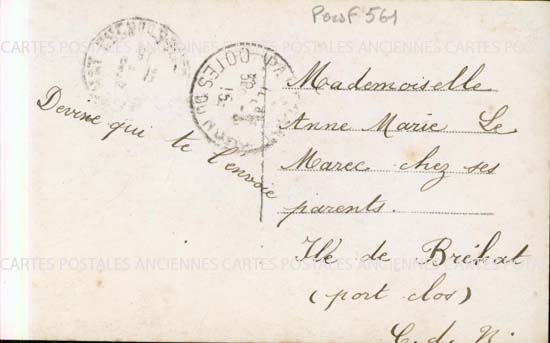 PocsF 561
CARTES POSTALES ANCIENNES CARTES POSTALES ANCIENNES CARTES
COTES DU
Devine qui te l'envoie
Mademoiselle
Anne Marie Le
Marec chez ses
parents.
Ile de Bréhat
(port clos)
C. du N.
CARTES POSTALES ANCIENNES CARTES POSTALES ANCIENNES CARTES